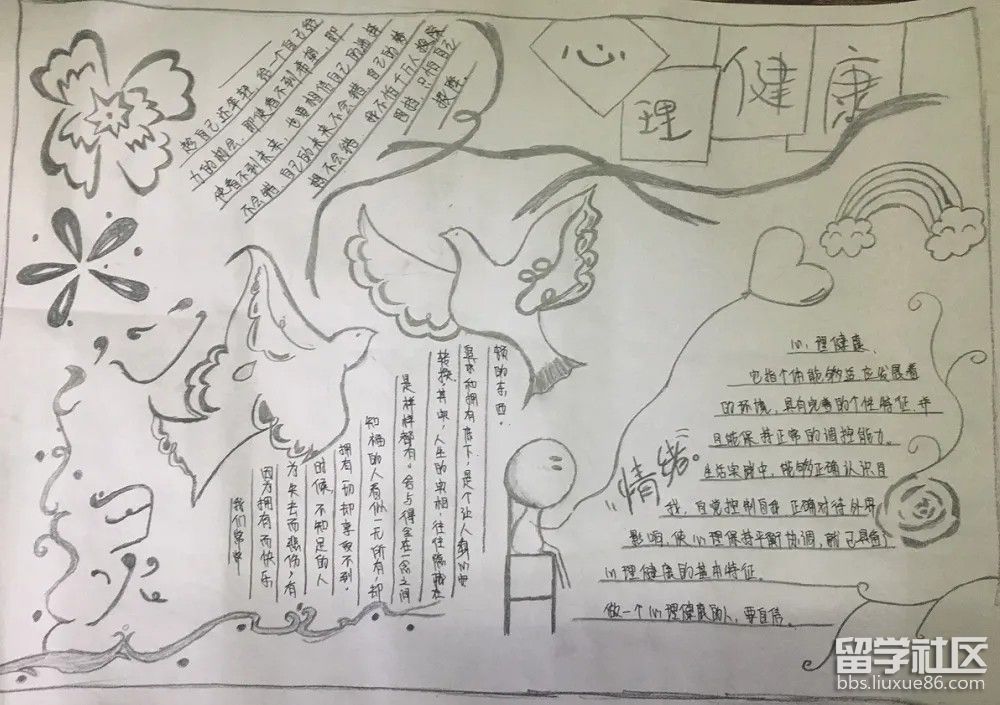 心理健康
趁自己还年轻,给一个自己努
力的机会,即使看不到希望,即
使看不到未来,也要相信自己的选择
不会错,自己的未来不会错,自己的梦
想不会错。我不怕千万人阻挡
只怕自己
投降。
我们常常
因为拥有而快乐
为失去而悲伤,有
时候,不知足的人
拥有一切却享受不到。
知福的人看似一无所有,却
是样样都有。舍与得会在一念之间
转换,其实,人生的实相,往往隐藏在
真求和拥有底下,是个让人
顿的东西。
“情绪。”
心理健康,
它指个体能够适应发展着
的环境,具有完善的个性特征,并
且能保持正常的调控能力。
生活实践中,能够正确认识自
我,自觉控制自我,正确对待外界
影响,使心理保持平衡协调,就已具备了
心理健康的基本特征。
做一个心理健康的人,要自信。
留学社区
bbs.liuxue86.com